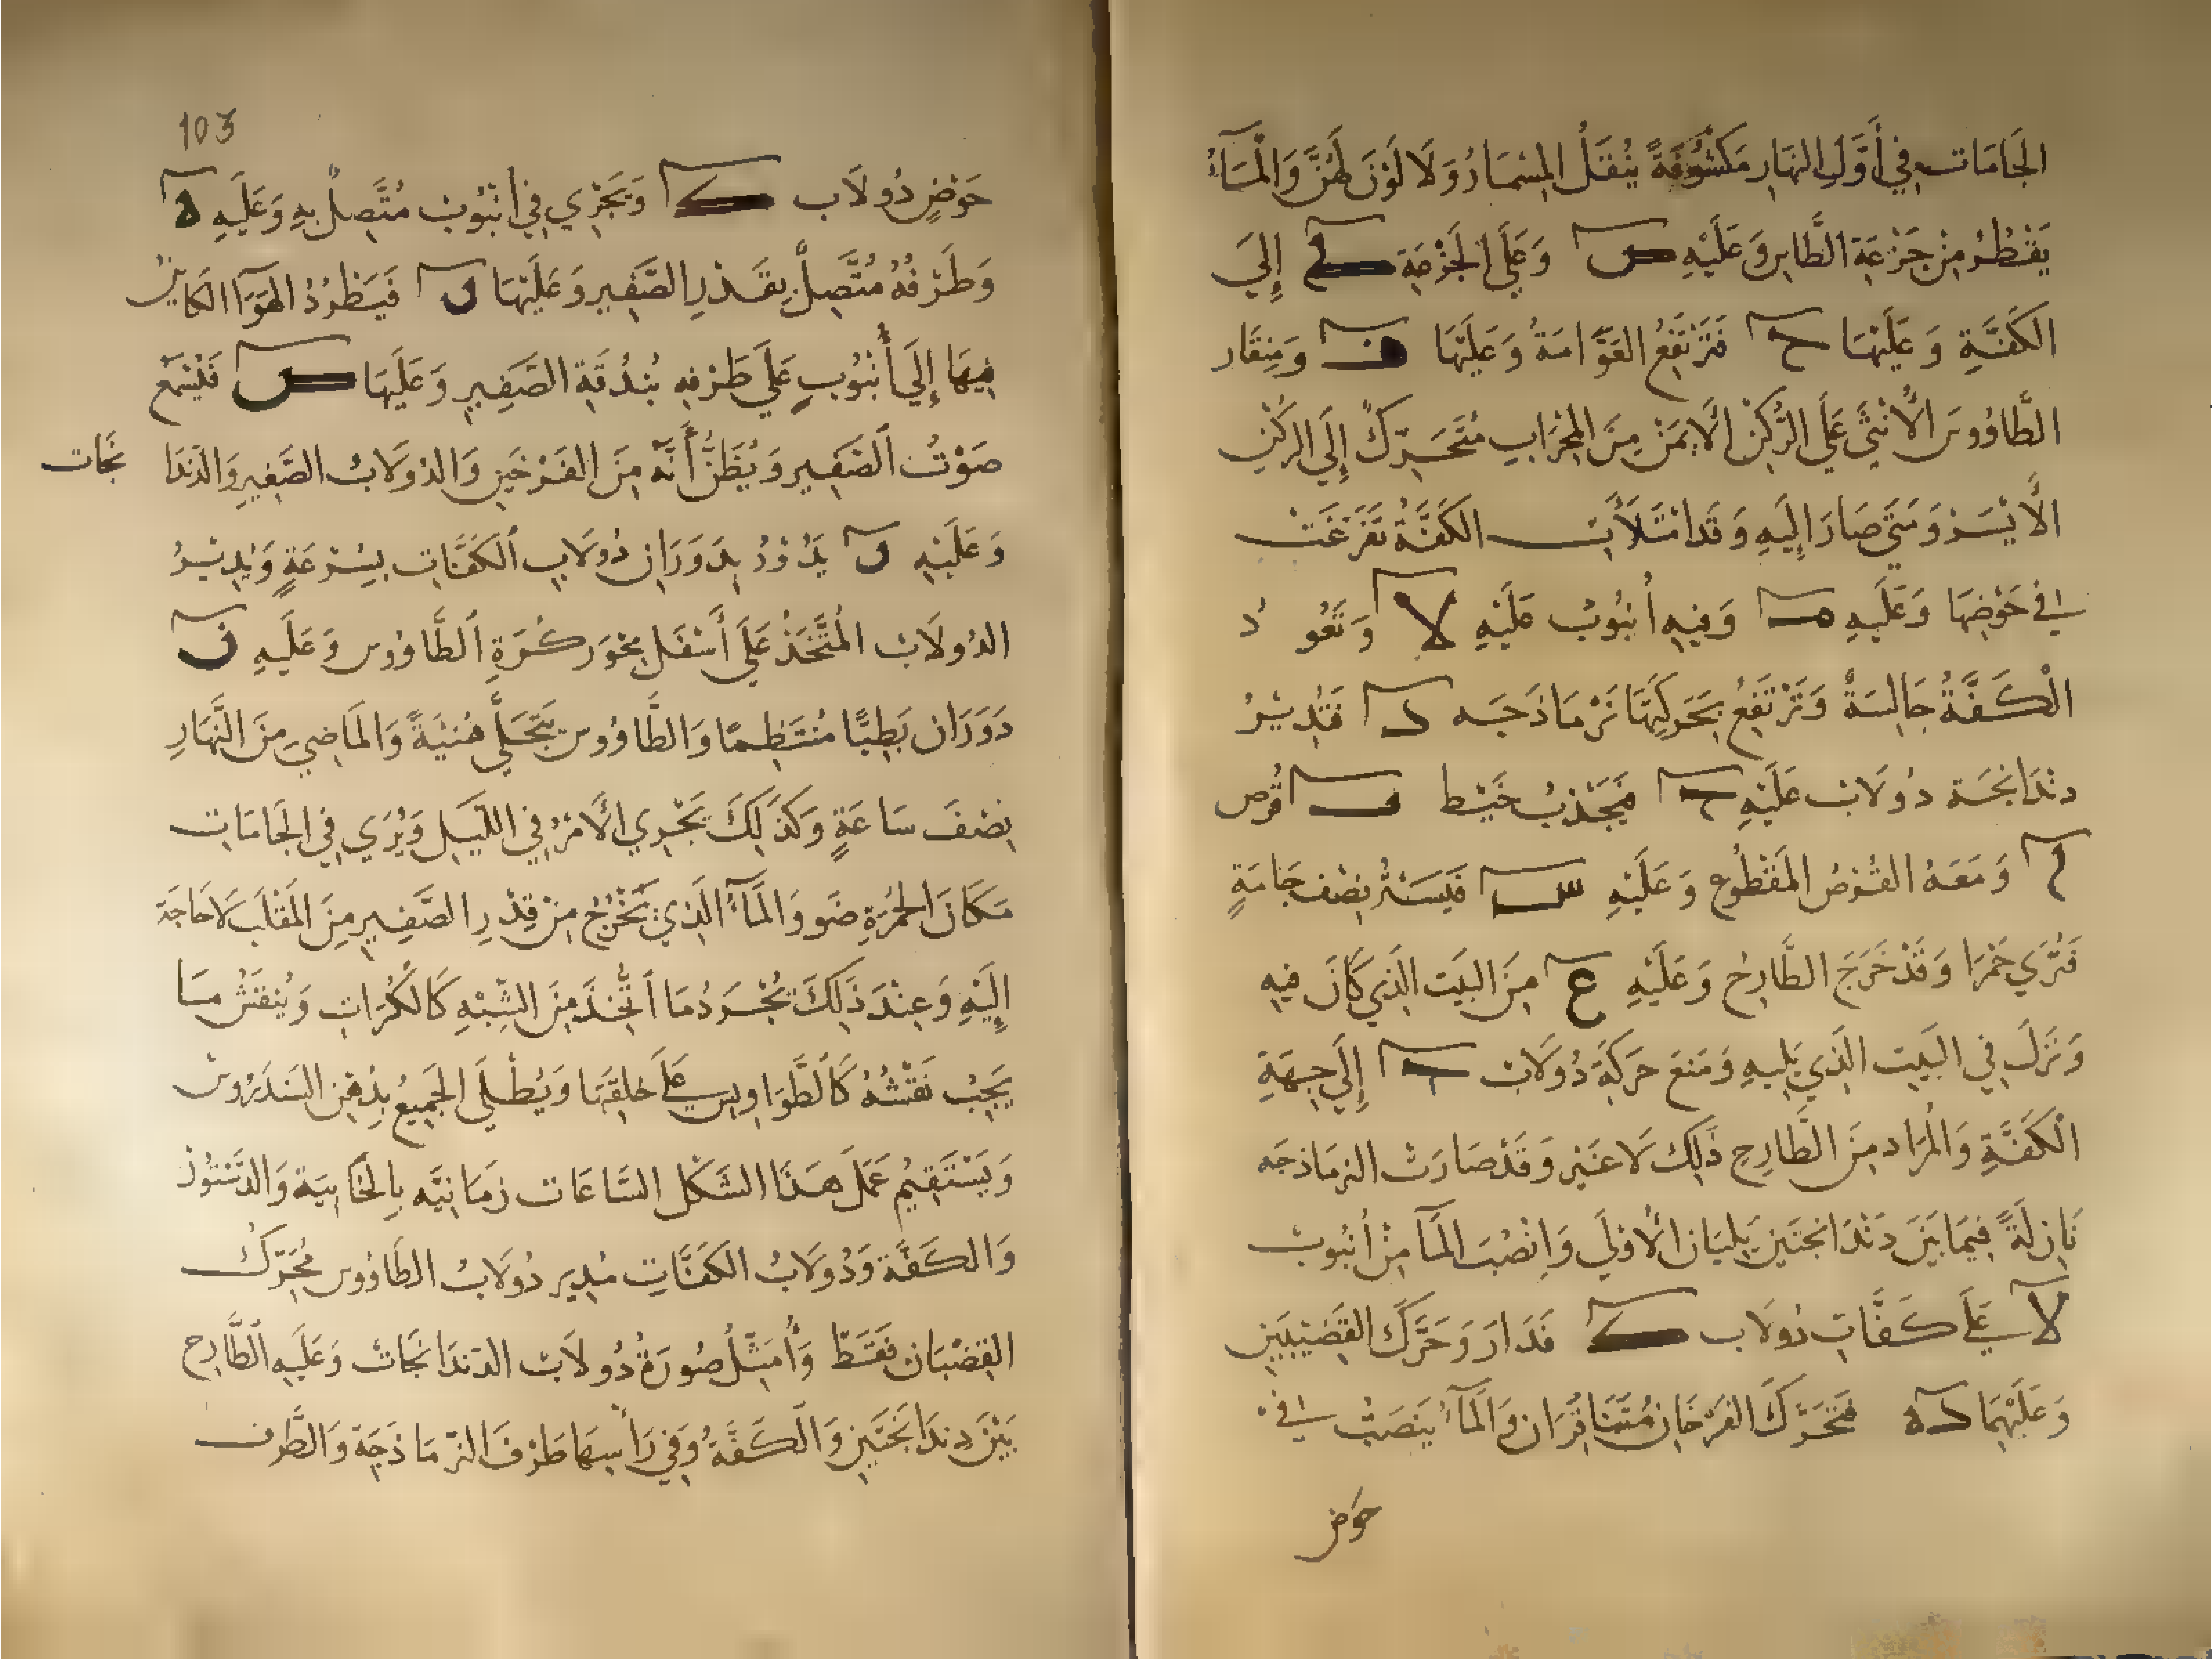 الجَامَات في أَوَّلِ النهار مَكشُوفَةً يُنقَلُ المِسمَارُ وَلَا لَوْنَ لَهُنَّ وَالْمَاءُ
يَقْطُرُ مِنْ جَزْعَةِ الطَّاير وَعَلَيْهِ ص وَعَلَى الجَزْعَة إِلَى
الكَفَّةِ وَعَلَيْهَا ح فَتَرْتَفِعُ العَوَّامَةُ وَعَلَيْهَا ف وَمِنقَار
الطَّاوُوسِ الأُنثَى عَلَى الرُّكْنِ الأَيمَنْ مِنَ المِحْرَابِ مُتَحَرِّكُ إِلَى الرُكْنِ
الأَيْسَرْ وَمَتَى صَارَ إِلَيهِ وَقَد امْتَلَأَت الكَفَّةُ تَفَرَغَتْ
في حَوْضِهَا وَعَلَيهِ وَفِيهِ أُنبُوب عَلَيْهِ لا وَتَعُو دُ
الْكَفَّةُ جَالِسَةً وَتَرْتَفِعُ بِحَركِتَهَا نَرْمَاذَجَه د فَتُدِيْرُ
دندَانجَة دُولَاب عَلَيْهِ فَيَجْذِبُ خَيْط قُرص
م وَمَعَهُ القُرْصُ المَقْطُوع وَعَلَيْهِ س فَيَسْتُرُ نِصْف جَامَةٍ
فَتُرَي حَمْرَا وَقَدْ خَرَجَ الطَّارِحُ وَعَلَيْهِ ع مِنَ البَيْت الَذِي كَانَ فيهِ
وَنَزَلَ فِي البَيْت الَّذِي يَلِيهِ وَمَنَعَ حَرَكَة دُولَاب إِلَى جِهَةِ
الْكَفَّةِ وَالْمُرَاد مِنَ الطَّارِحِ ذَلِكَ لَا غَيْر وَقَدْ صَارَتْ النرمَاذجَه
نَازِلَةً فِيمَا بَيْنَ دَنْدَانجَتَين يَلِيَان الأُوْلَى وَانْصُبَ الْمَآ مِنْ أُنْبُوب
لا عَلَى كَفَّاتِ دُولَاب فَدَارَ وَحَرَّكَ القَضِيْبَيْن
وَعَلَيْهِمَا د ه فَتَحَرَّكَ الفَرْخَان مُتَنَاقِرَان وَالْمَآءُ يَنصَبُّ في
حوَض
103
حَوْضِ دُولَاب وَيَجْرِي فِي أنْبُوب مُتَّصِلٌ بِهِ وَعَلَيهِ ه
وَطَرَفُهُ مُتَّصِلٌ بِقَدْرِ الصَّفِير وَعَلَيْهَا ن فَيَطْرُدُ الهَوَا الكَاين
فِيهَا إِلَى أُنبُوبٍ عَلَى طَرَفِهِ بُندُقَة الصَّفِيرِ وَعَلَيهَا س فَيُسْمَع
صَوْتُ الصَّفِير وَيُظَنُّ أَنَّهُ مِنَ الفَرْخَينِ وَالدُولَابُ الصَّغِير وَالدندَا نجَات
وَعَلَيْهِ ن يَدُوْرُ بِدَوَرَانِ دُولَابِ الكَفَّاتِ بِسُرْعَةٍ وَيُدِيْرُ
الدُولَابَ المُتَّخَذُ عَلَى أَسْفَلِ مِحْوَر كُرَةِ الطَّاوُوس وَعَلَيهِ ف
دَوَرَان بَطِيًّا مُنْتَظِمًا وَالطَّاوُوس يَتَجَلَّى هُنيَةً وَالمَاضِي مِنَ النَّهَارِ
نِصْفَ سَاعَةٍ وَكَذَلِكَ يَجْرِي الأَمْرُ فِي اللَّيْلِ وَيُرَي فِي الجَامَات
مَكَانَ الحُمْرَةِ ضَو وَالْمَآءُ الَّذِي يَخْرُجُ مِنْ قِدْرِ الصَّفِيرِ مِنَ المَقْلَب لَا حَاجَة
إِلَيْهِ وَعِنْدَ ذَلِكَ يُجْرَدُ مَا اتُّخِذَ مِنَ الشَّبَهِ كَالكُرَات وَيُنْقَشُ مَا
يَجِبُ نَقْشُهُ كَالطَّوَاوِيس عَلَى خِلقَتِهَا وَيُطْلَى الجَمِيعُ بِدُهْنِ السَنَدَرُوس
وَيَسْتَقِيْم عَمَل هَذَا الشَكْلِ السَّاعَات زمَانيَّه بِالخَابِيَة وَالدَسْتُوْر
وَالكَفَّة وَدُولَابُ الكَفَّاتِ مُدِير دُولَابُ الطَاوُوس مُحَرِّكُ
القِضْبَان فَقَطْ وَأُمَثِّلُ صُورَةُ دُولَاب الدَندَانجَات وَعَلَيهِ الطَّارِح
بَيْنَ دندَانجَتَيْنِ وَالْكَفَّةُ وَفِي رَأسِهَا طَرَفَ النَّرمَاذجَة وَالطَّرف